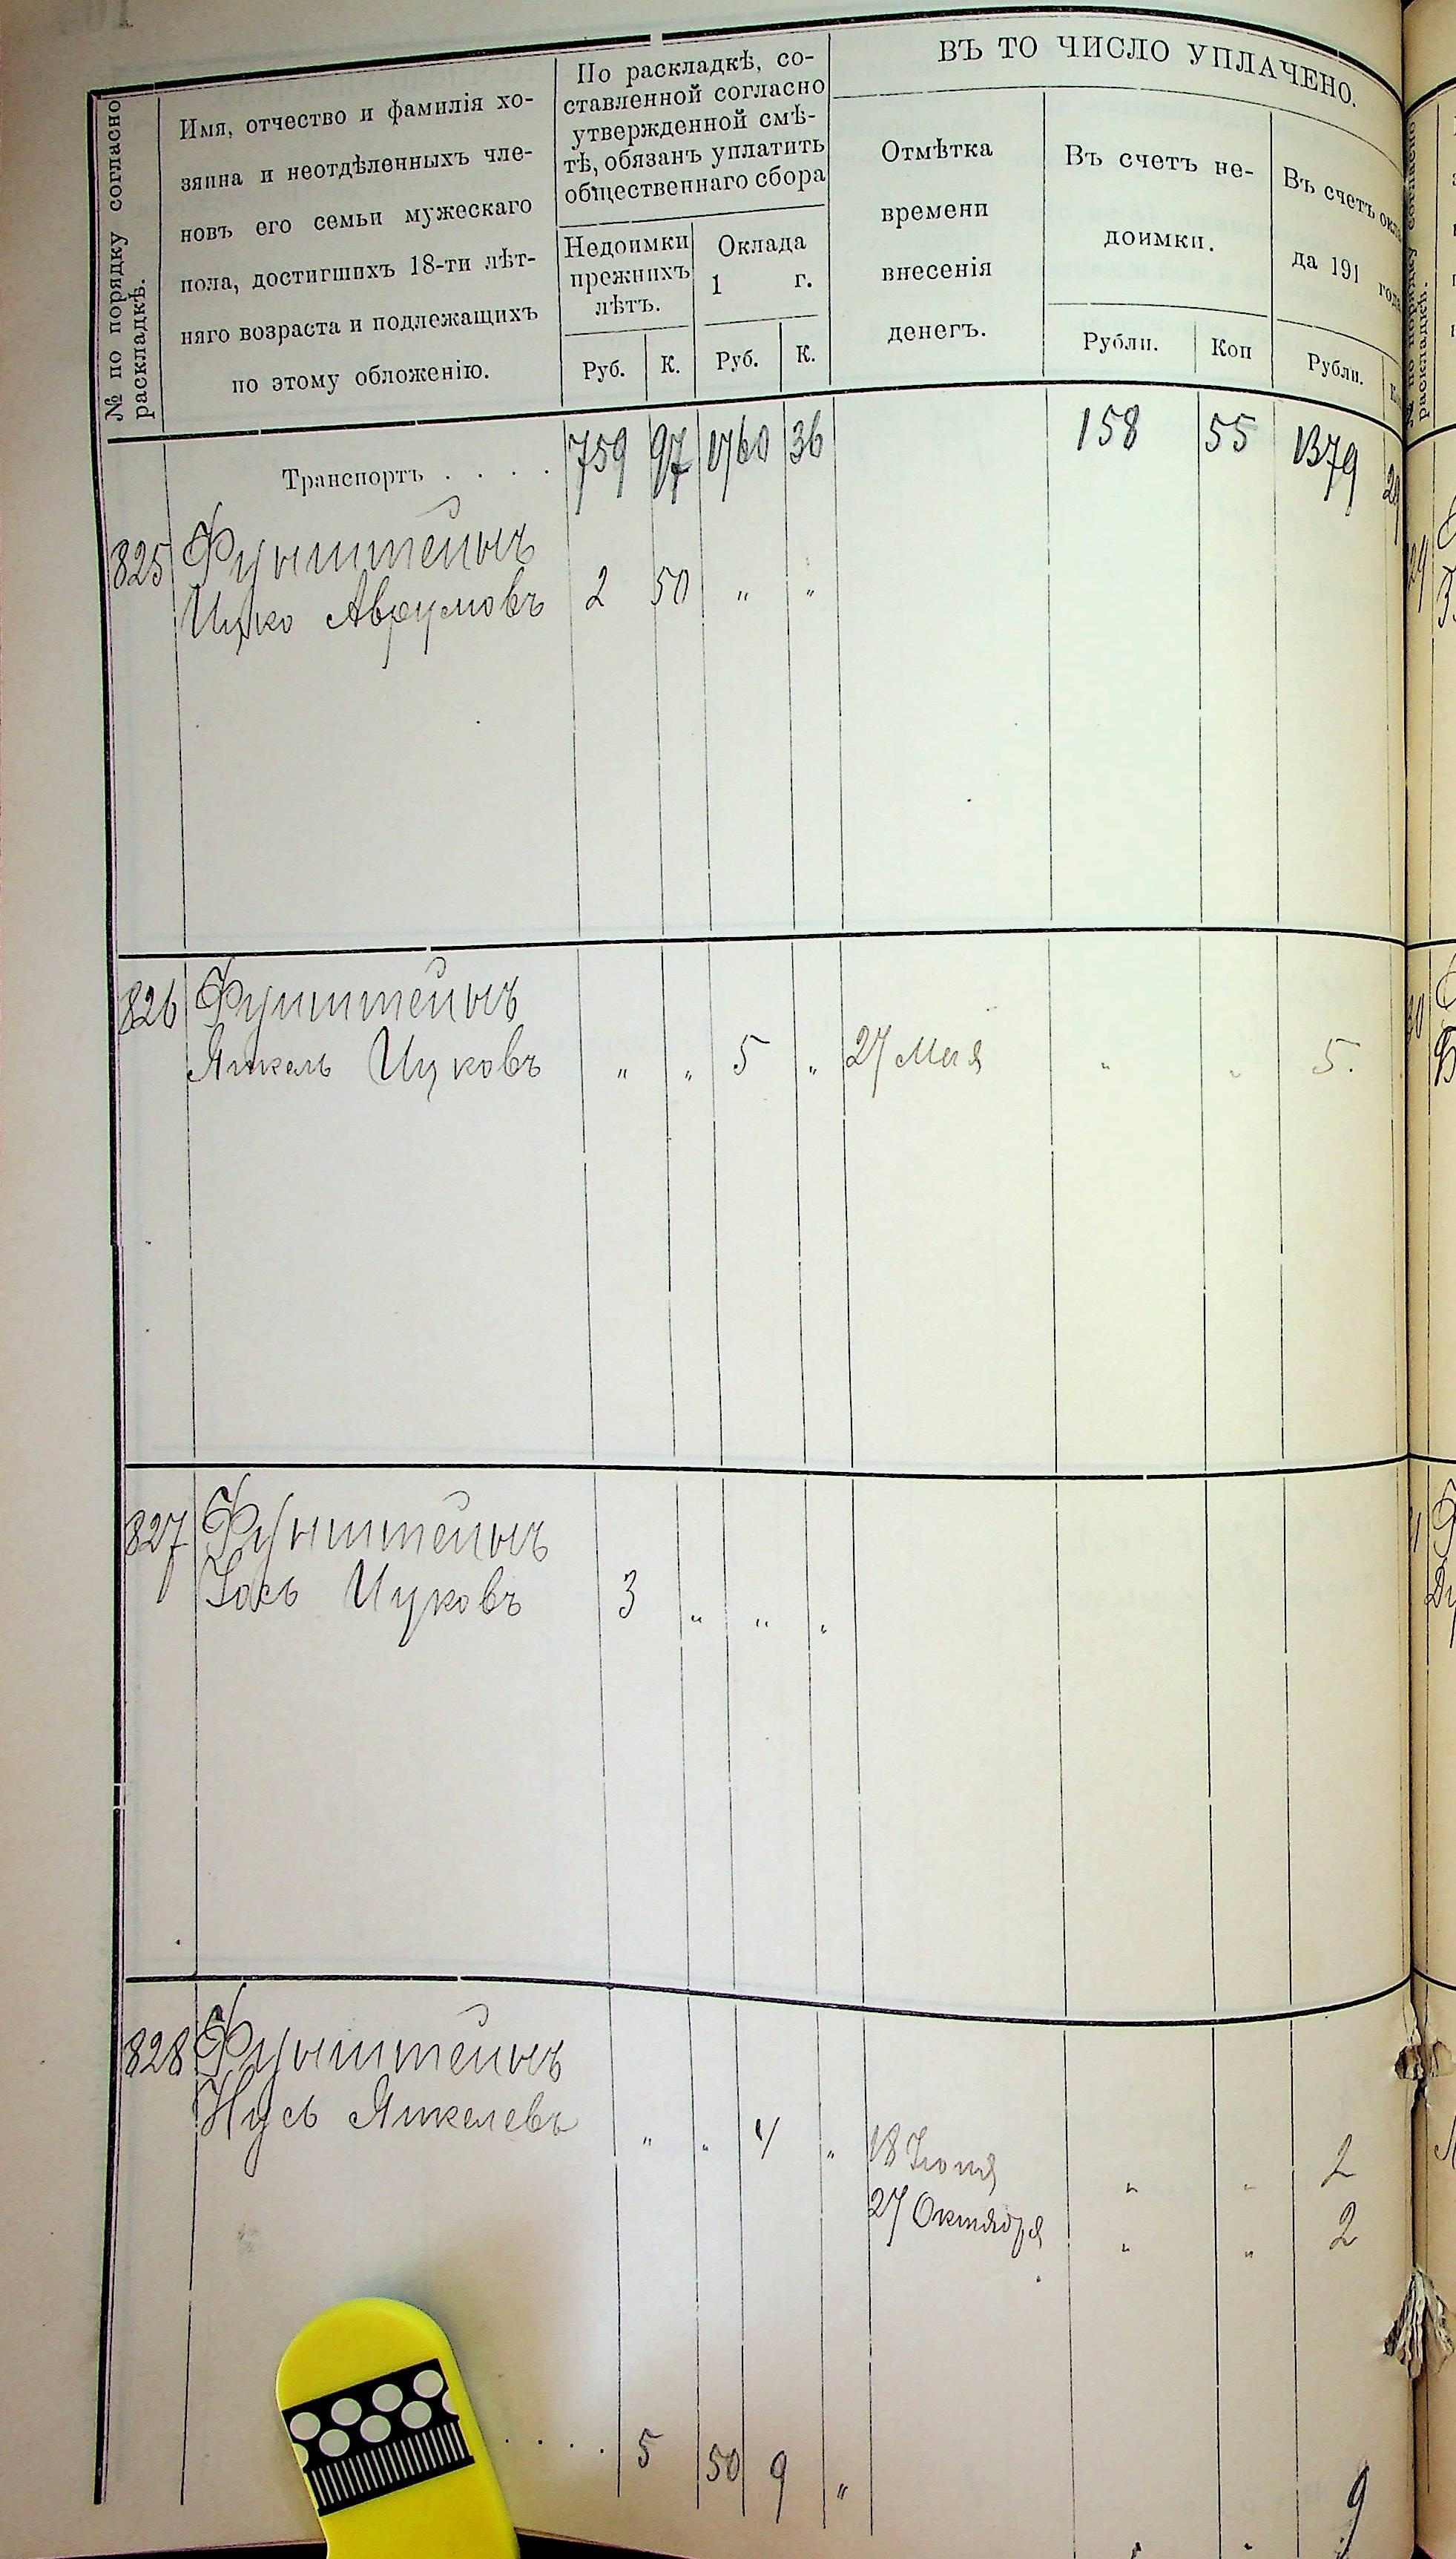 № по порядку согласно
раскладкѣ.
Имя, отчество и фамилія хо-
зяина и неотдѣленныхъ чле-
новъ его семьи мужескаго
пола, достигшихъ 18-ти лѣт-
няго возраста и подлежащихъ
по этому обложенію.
По раскладкѣ, со-
ставленной согласно
утвержденной смѣ-
тѣ, обязанъ уплатить
общественнаго сбора
Недоимки
прежнихъ
лѣтъ.
Оклада
1 г.
Руб. К. Руб. К.
ВЪ ТО ЧИСЛО УПЛАЧЕНО.
Отмѣтка
времени
внесенія
денегъ.
Въ счетъ не-
доимки.
Рубли. Коп
Въ счетъ окла
да 191 года
Рубли.
Транспортъ . . . . 759 97 1760 36 158 55 1379
825 Фунштейнъ
Ицко Аврумовъ 2 50 " "
826 Фунштейнъ
Янкель Ицковъ " " 5 " 27 Мая " " 5.
827 Фунштейнъ
Іось Ицковъ 3 " " "
828 Фунштейнъ
Нусь Янкелевъ " " 4 " 18 Іюня " " 2
27 Октября " " 2
. . . . 5 50 9 " " " 9